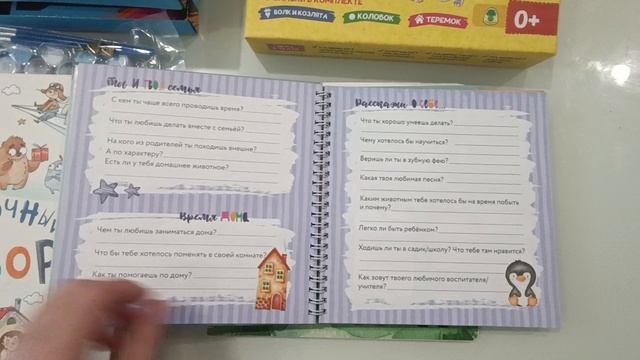 В КОМПЛЕКТЕ
ВОЛК И КОЗЛЯТА
КОЛОБОК
ТЕРЕМОК
0+
Ты И Твоя семья
С кем ты чаще всего проводишь время?
Что ты любишь делать вместе с семьёй?
На кого из родителей ты похож внешне?
А по характеру?
Есть ли у тебя домашнее животное?
Время ДОМА
Чем ты любишь заниматься дома?
Что бы тебе хотелось поменять в своей комнате?
Как ты помогаешь по дому?
Расскажи О себе
Что ты хорошо умеешь делать?
Чему хотелось бы научиться?
Веришь ли ты в зубную фею?
Какая твоя любимая песня?
Каким животным тебе хотелось бы на время побыть
и почему?
Легко ли быть ребёнком?
Ходишь ли ты в садик/школу? Что тебе там нравится?
Как зовут твоего любимого воспитателя/
учителя?